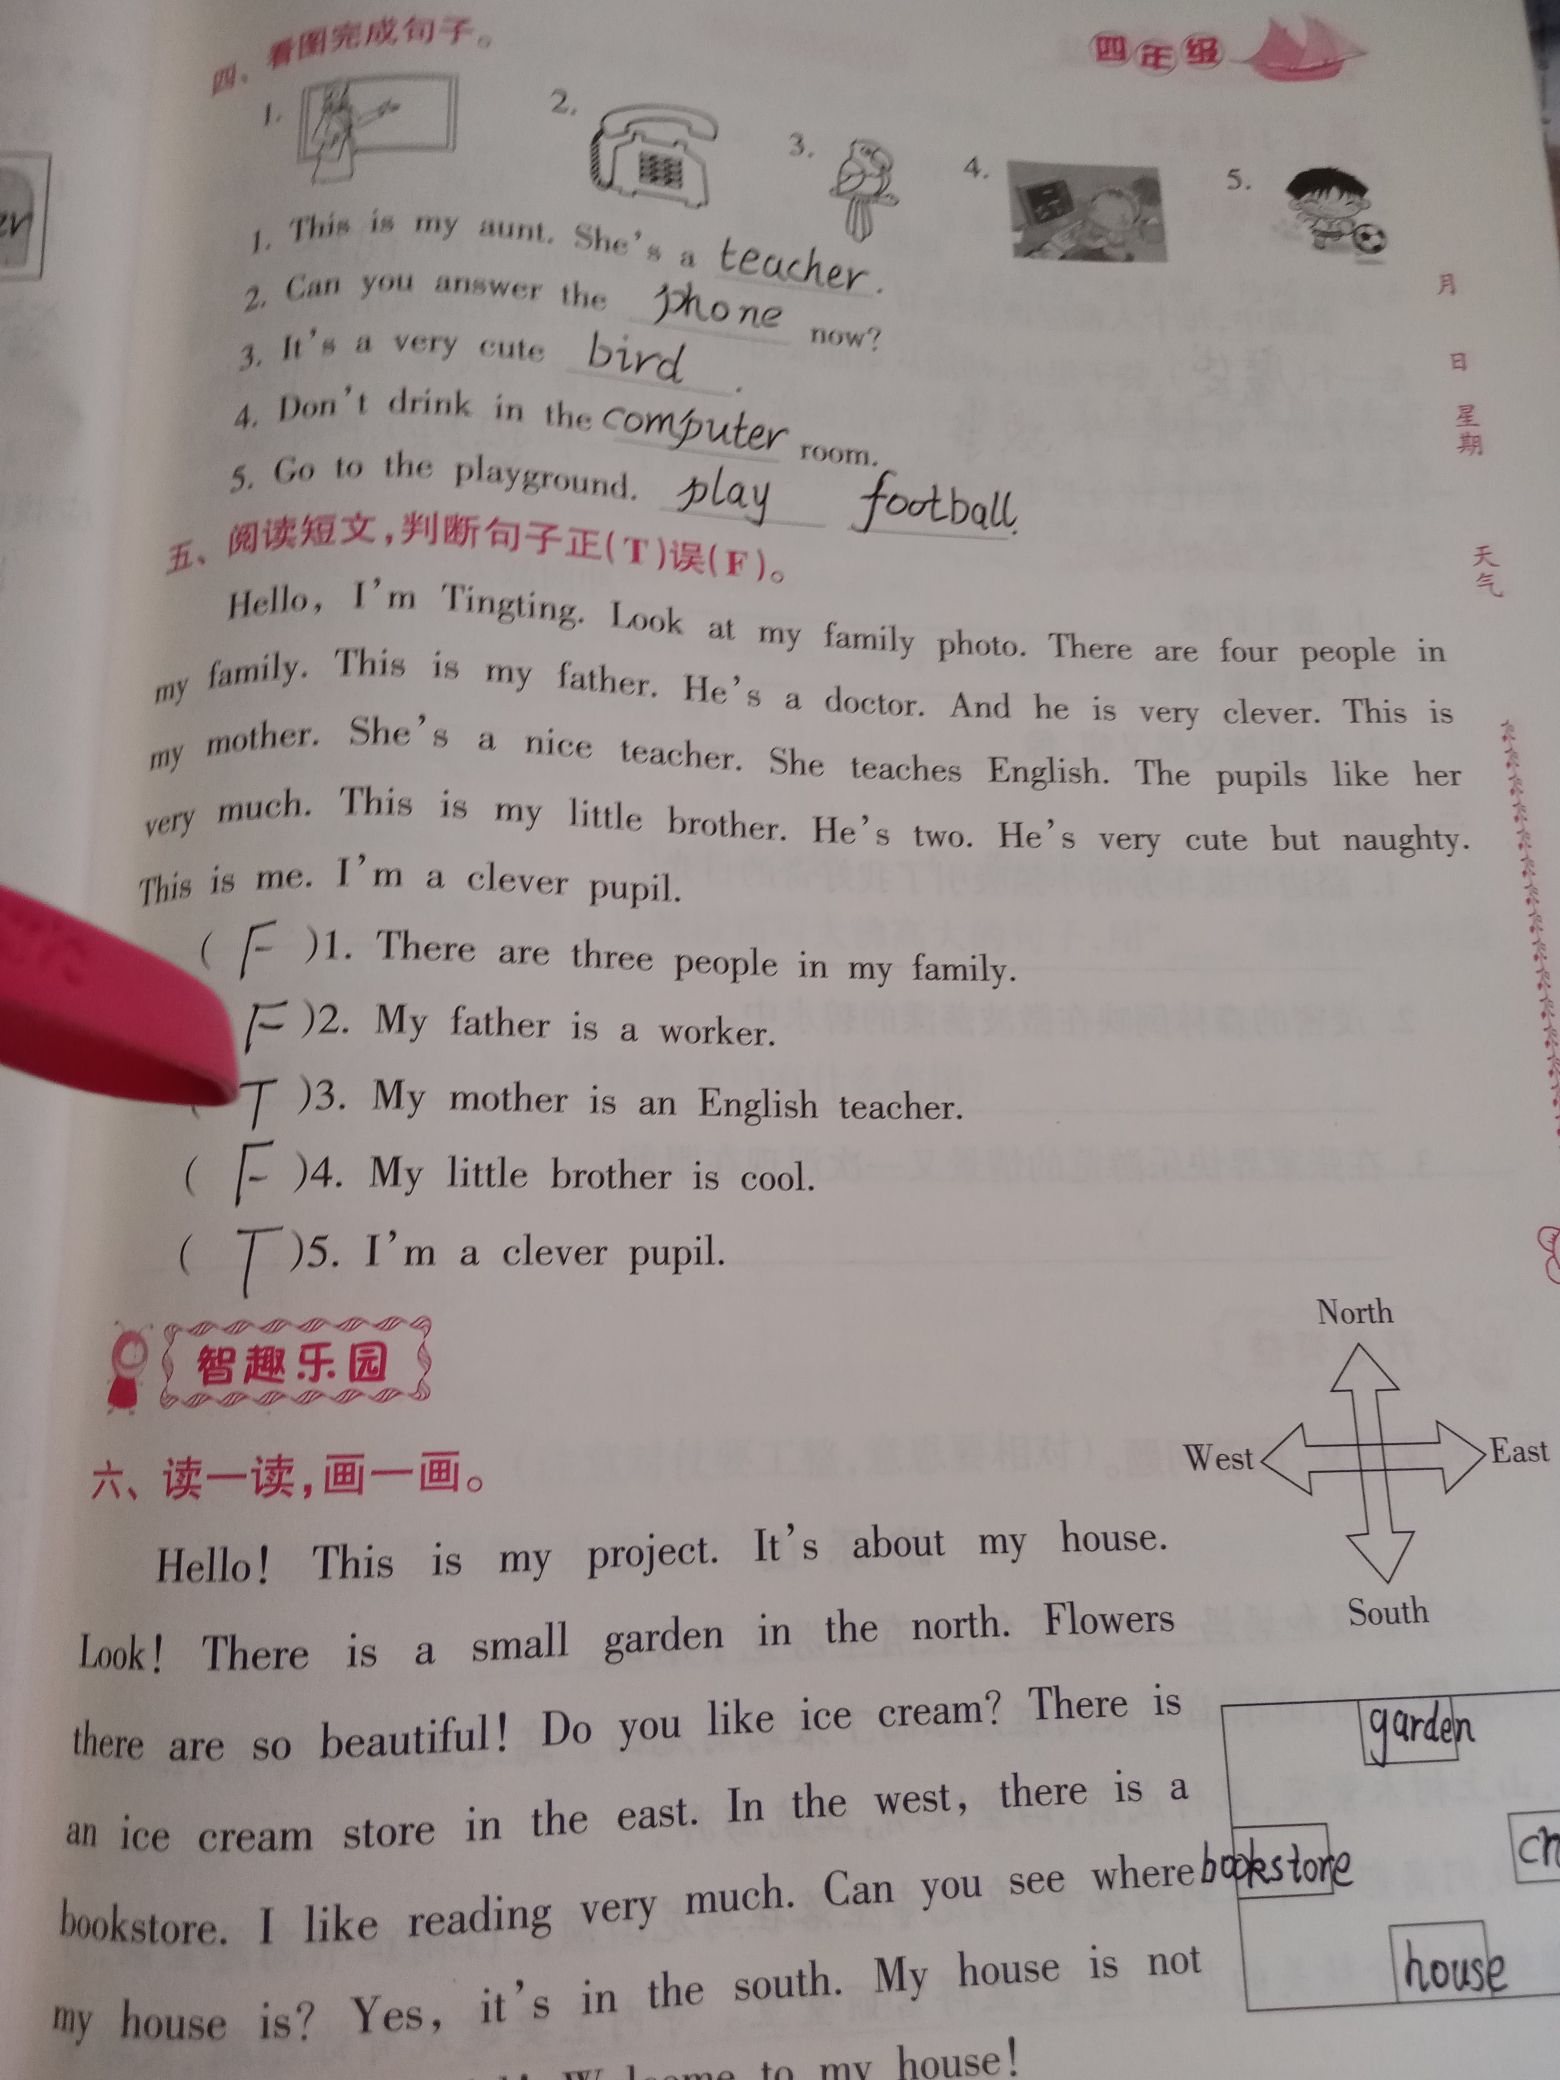 四年级
四、看图完成句子。
1. 2. 3. 4. 5.
1. This is my aunt. She's a teacher.
2. Can you answer the phone now?
3. It's a very cute bird.
4. Don't drink in the computer room.
5. Go to the playground. play football.
月
日
星期
天气
五、阅读短文,判断句子正(T)误(F)。
Hello, I'm Tingting. Look at my family photo. There are four people in
my family. This is my father. He's a doctor. And he is very clever. This is
my mother. She's a nice teacher. She teaches English. The pupils like her
very much. This is my little brother. He's two. He's very cute but naughty.
This is me. I'm a clever pupil.
( F )1. There are three people in my family.
F )2. My father is a worker.
( T )3. My mother is an English teacher.
( F )4. My little brother is cool.
( T )5. I'm a clever pupil.
智趣乐园
六、读一读,画一画。
North
West
East
South
Hello! This is my project. It's about my house.
Look! There is a small garden in the north. Flowers
there are so beautiful! Do you like ice cream? There is
an ice cream store in the east. In the west, there is a
bookstore. I like reading very much. Can you see where
my house is? Yes, it's in the south. My house is not
to my house!
garden
bookstore
house